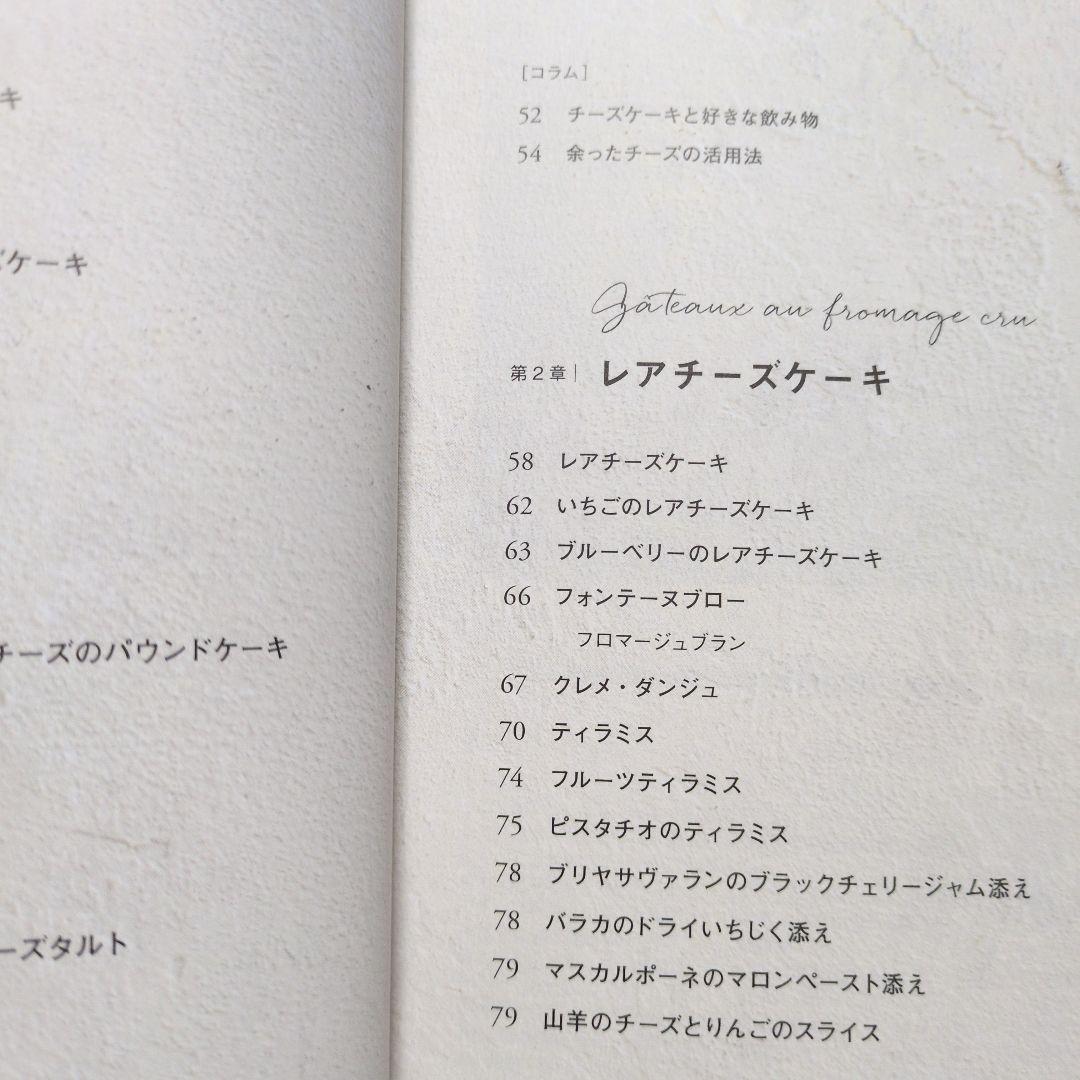 キ
ズケーキ
チーズのパウンドケーキ
ーズタルト
[コラム]
52 チーズケーキと好きな飲み物
54 余ったチーズの活用法
Gâteaux au fromage cru
第2章| レアチーズケーキ
58 レアチーズケーキ
62 いちごのレアチーズケーキ
63 ブルーベリーのレアチーズケーキ
66 フォンテーヌブロー
フロマージュブラン
67 クレメ・ダンジュ
70 ティラミス
74 フルーツティラミス
75 ピスタチオのティラミス
78 ブリヤサヴァランのブラックチェリージャム添え
78 バラカのドライいちじく添え
79 マスカルポーネのマロンペースト添え
79 山羊のチーズとりんごのスライス